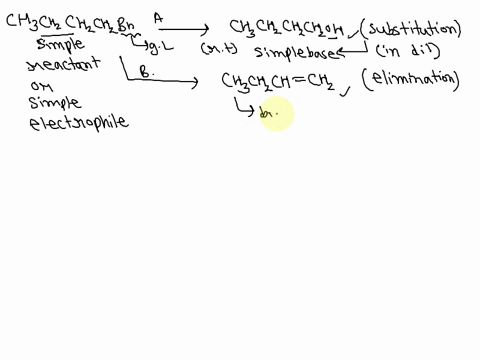 CH3CH2CH2CH2Br A → CH3CH2CH2CH2OH (substitution)
simple → g.L (r.t) simple base (in dil)
reactant B. → CH3CH2CH=CH2 (elimination)
or
simple
electrophile